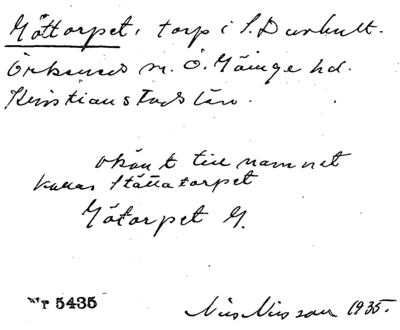 Göttorpet, torp i S. Dunkult.
Örkeneds sn. Ö. Göinge hd.
Kristianstads län.
okänt till namnet
kallas Stättatorpet
Götorpet G.
Nr 5435
Nils Nilsson 1935.